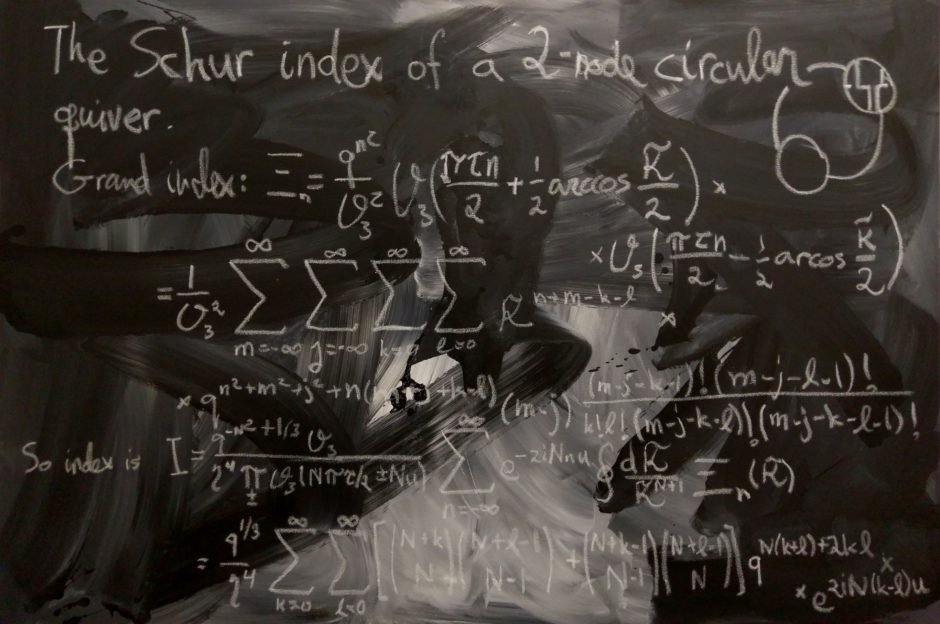 The Schur index of a 2-node circular
quiver.
Grand index: Ξ_n = q^{n^2}/ϑ_3^2 ϑ_3(πτn/2 + 1/2 arccos κ̃/2) ×
× ϑ_3(πτn/2 − 1/2 arcos κ̃/2)
= 1/ϑ_3^2 ∑_{m=-∞}^{∞} ∑_{j=-∞}^{∞} ∑^{∞} ∑_{l=0}^{∞} κ^{n+m-k-l} ×
× q^{n^2+m^2+j^2+n( +k-l)} (m-j) (m-j-k-1)!(m-j-l-1)! / k!l!(m-j-k-l)!(m-j-k-l-1)!
So index is I = q^{-n^2+1/3} ϑ_3 / 2^4 π_± ϑ_3(Nπτ/2 ± Nu) ∑_{n=-∞}^{∞} e^{-2iNnu} ∮ dκ̃/κ̃^{N+1} Ξ_n(κ̃)
= q^{1/3}/2^4 ∑_{k=0}^{∞} ∑_{l=0}^{∞} [(N+k N)(N+l-1 N-1) + (N+k-1 N-1)(N+l-1 N)] q^{N(k+l)+2kl} ×
× e^{2iN(k-l)u}